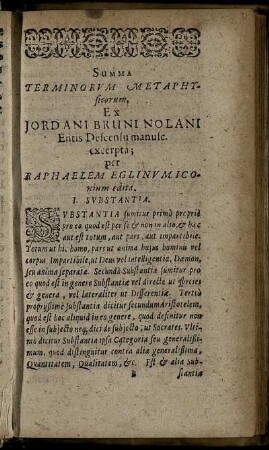 SUMMA
TERMINORVM METAPHY-
sicorum,
Ex
JORDANI BRUNI NOLANI
Entis Descensu manusc.
excerpta;
per
RAPHAELEM EGLINVM ICO-
nium edita.
I. SVBSTANTIA.
SVBSTANTIA sumitur primò propriè
pro eo quod est per se & non in alio, & hæc
aut est totum, aut pars, aut impartibile.
Totum ut hi. homo, pars ut anima hujus hominis vel
corpus Impartibile, ut Deus vel intelligentia, Dæmon,
seu anima separata. Secundò Substantia sumitur pro
eo quod est in genere Substantiæ vel directè ut species
& genera, vel lateraliter ut Differentiæ. Tertiò
propriissimè substantia dicitur secundum Aristotelem,
quod est hoc aliquid in eo genere, quod definitur non
esse in subjecto neq; dici de subjecto, ut Socrates. Vlti-
mò dicitur Substantia ipsa Categoria seu generalissi-
mum, quod distinguitur contra alia generalissima,
Quantitatem, Qualitatem, &c. Est & alia Sub-
B stantia